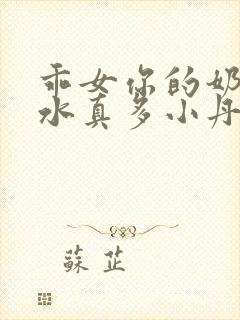 乖女你的奶
水真多小丹
蘇芷